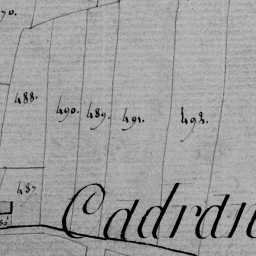 488.
490. 489. 491. 492.
487
Cadran